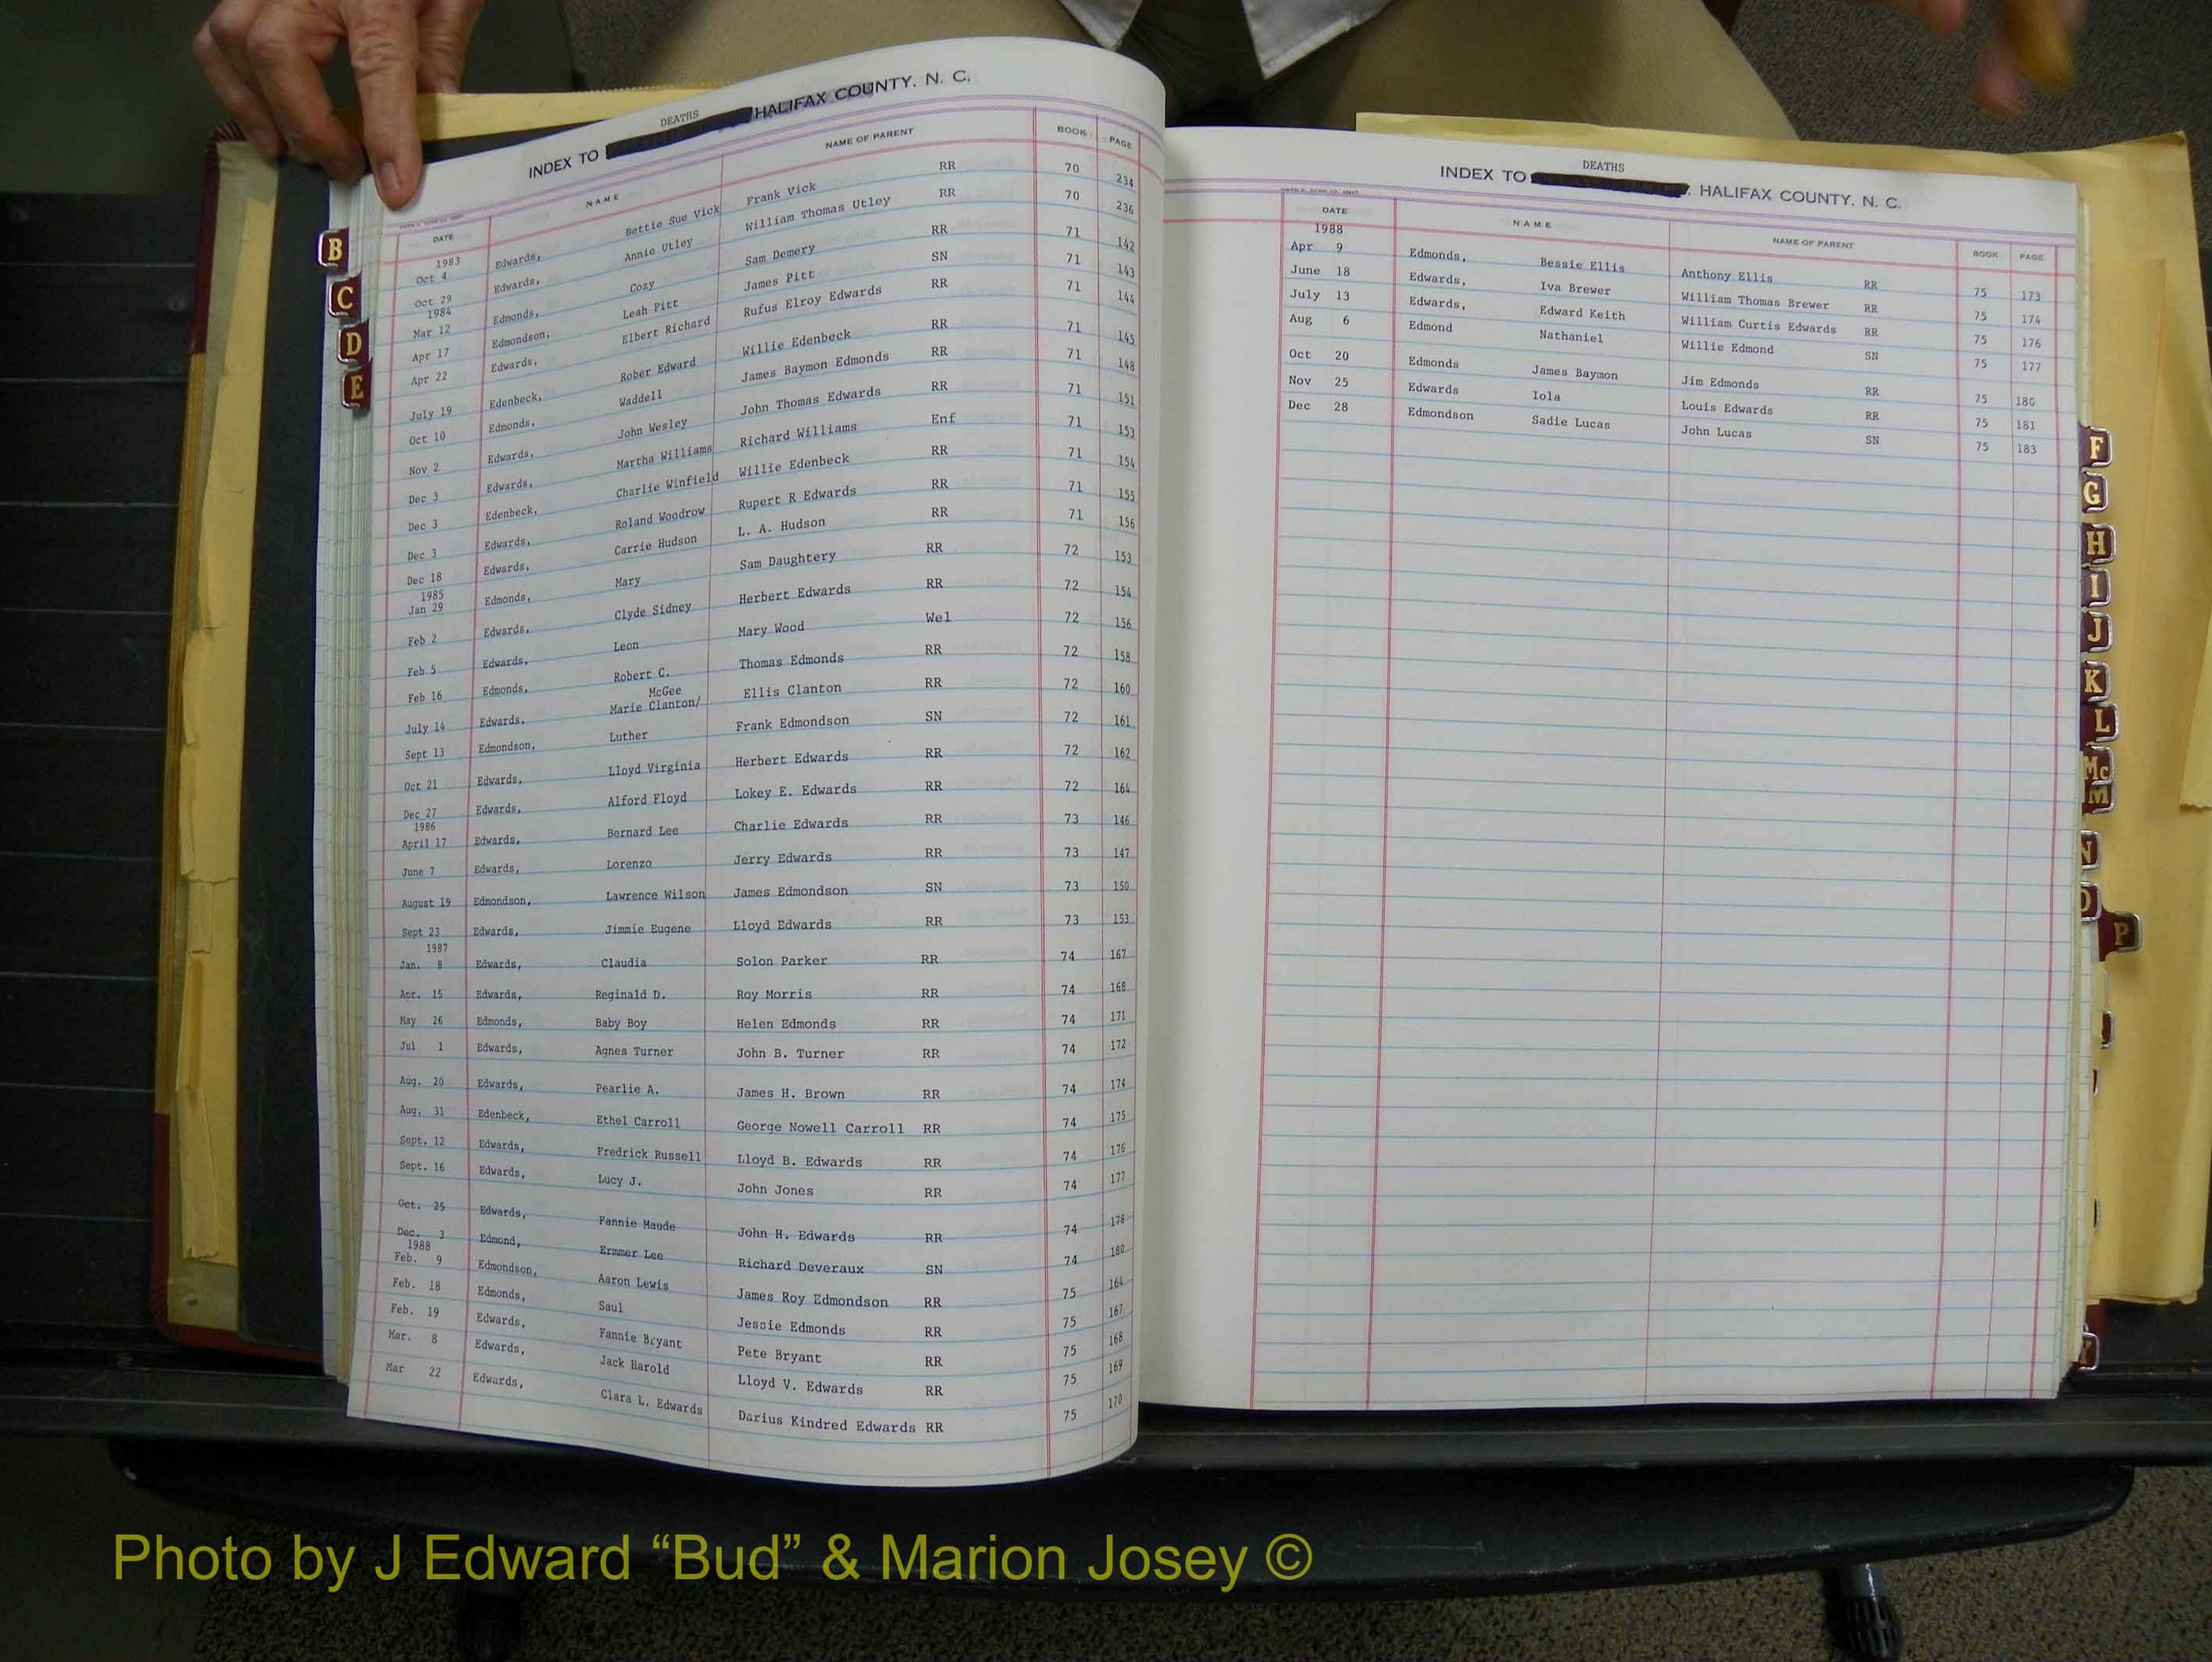 INDEX TO DEATHS HALIFAX COUNTY. N. C.
DATE NAME NAME OF PARENT BOOK PAGE
1983
Oct 4 Edwards, Bettie Sue Vick Frank Vick RR 70 234
Oct 29 Edwards, Annie Utley William Thomas Utley RR 70 236
1984
Mar 12 Edmonds, Cozy Sam Demery RR 71 142
Apr 17 Edmondson, Leah Pitt James Pitt SN 71 143
Apr 22 Edwards, Elbert Richard Rufus Elroy Edwards RR 71 144
July 19 Edenbeck, Rober Edward Willie Edenbeck RR 71 145
Oct 10 Edmonds, Waddell James Baymon Edmonds RR 71 148
Nov 2 Edwards, John Wesley John Thomas Edwards RR 71 151
Dec 3 Edwards, Martha Williams Richard Williams Enf 71 153
Dec 3 Edenbeck, Charlie Winfield Willie Edenbeck RR 71 154
Dec 3 Edwards, Roland Woodrow Rupert R Edwards RR 71 155
Dec 18 Edwards, Carrie Hudson L. A. Hudson RR 71 156
1985
Jan 29 Edmonds, Mary Sam Daughtery RR 72 153
Feb 2 Edwards, Clyde Sidney Herbert Edwards RR 72 154
Feb 5 Edwards, Leon Mary Wood Wel 72 156
Feb 16 Edmonds, Robert C. Thomas Edmonds RR 72 158
McGee
July 14 Edwards, Marie Clanton/ Ellis Clanton RR 72 160
Sept 13 Edmondson, Luther Frank Edmondson SN 72 161
Oct 21 Edwards, Lloyd Virginia Herbert Edwards RR 72 162
Dec 27 Edwards, Alford Floyd Lokey E. Edwards RR 72 164
1986
April 17 Edwards, Bernard Lee Charlie Edwards RR 73 146
June 7 Edwards, Lorenzo Jerry Edwards RR 73 147
August 19 Edmondson, Lawrence Wilson James Edmondson SN 73 150
Sept 23 Edwards, Jimmie Eugene Lloyd Edwards RR 73 153
1987
Jan. 8 Edwards, Claudia Solon Parker RR 74 167
Apr. 15 Edwards, Reginald D. Roy Morris RR 74 168
May 26 Edmonds, Baby Boy Helen Edmonds RR 74 171
Jul 1 Edwards, Agnes Turner John B. Turner RR 74 172
Aug. 20 Edwards, Pearlie A. James H. Brown RR 74 174
Aug. 31 Edenbeck, Ethel Carroll George Nowell Carroll RR 74 175
Sept. 12 Edwards, Fredrick Russell Lloyd B. Edwards RR 74 176
Sept. 16 Edwards, Lucy J. John Jones RR 74 177
Oct. 25 Edwards, Fannie Maude John H. Edwards RR 74 178
Dec. 3 Edmond, Ermmer Lee Richard Deveraux SN 74 180
1988
Feb. 9 Edmondson, Aaron Lewis James Roy Edmondson RR 75 164
Feb. 18 Edmonds, Saul Jessie Edmonds RR 75 167
Feb. 19 Edwards, Fannie Bryant Pete Bryant RR 75 168
Mar. 8 Edwards, Jack Harold Lloyd V. Edwards RR 75 169
Mar 22 Edwards, Clara L. Edwards Darius Kindred Edwards RR 75 170
B
C
D
E
INDEX TO DEATHS HALIFAX COUNTY. N. C.
DATE NAME NAME OF PARENT BOOK PAGE
1988
Apr 9 Edmonds, Bessie Ellis Anthony Ellis RR 75 173
June 18 Edwards, Iva Brewer William Thomas Brewer RR 75 174
July 13 Edwards, Edward Keith William Curtis Edwards RR 75 176
Aug 6 Edmond Nathaniel Willie Edmond SN 75 177
Oct 20 Edmonds James Baymon Jim Edmonds RR 75 180
Nov 25 Edwards Iola Louis Edwards RR 75 181
Dec 28 Edmondson Sadie Lucas John Lucas SN 75 183
F
G
H
I
J
K
L
Mc
M
N
O
P
Y
Photo by J Edward “Bud” & Marion Josey ©